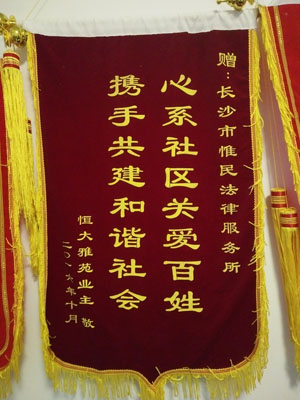 赠：长沙市惟民法律服务所
心系社区关爱百姓
携手共建和谐社会
恒大雅苑业主 敬
二〇一六年十月